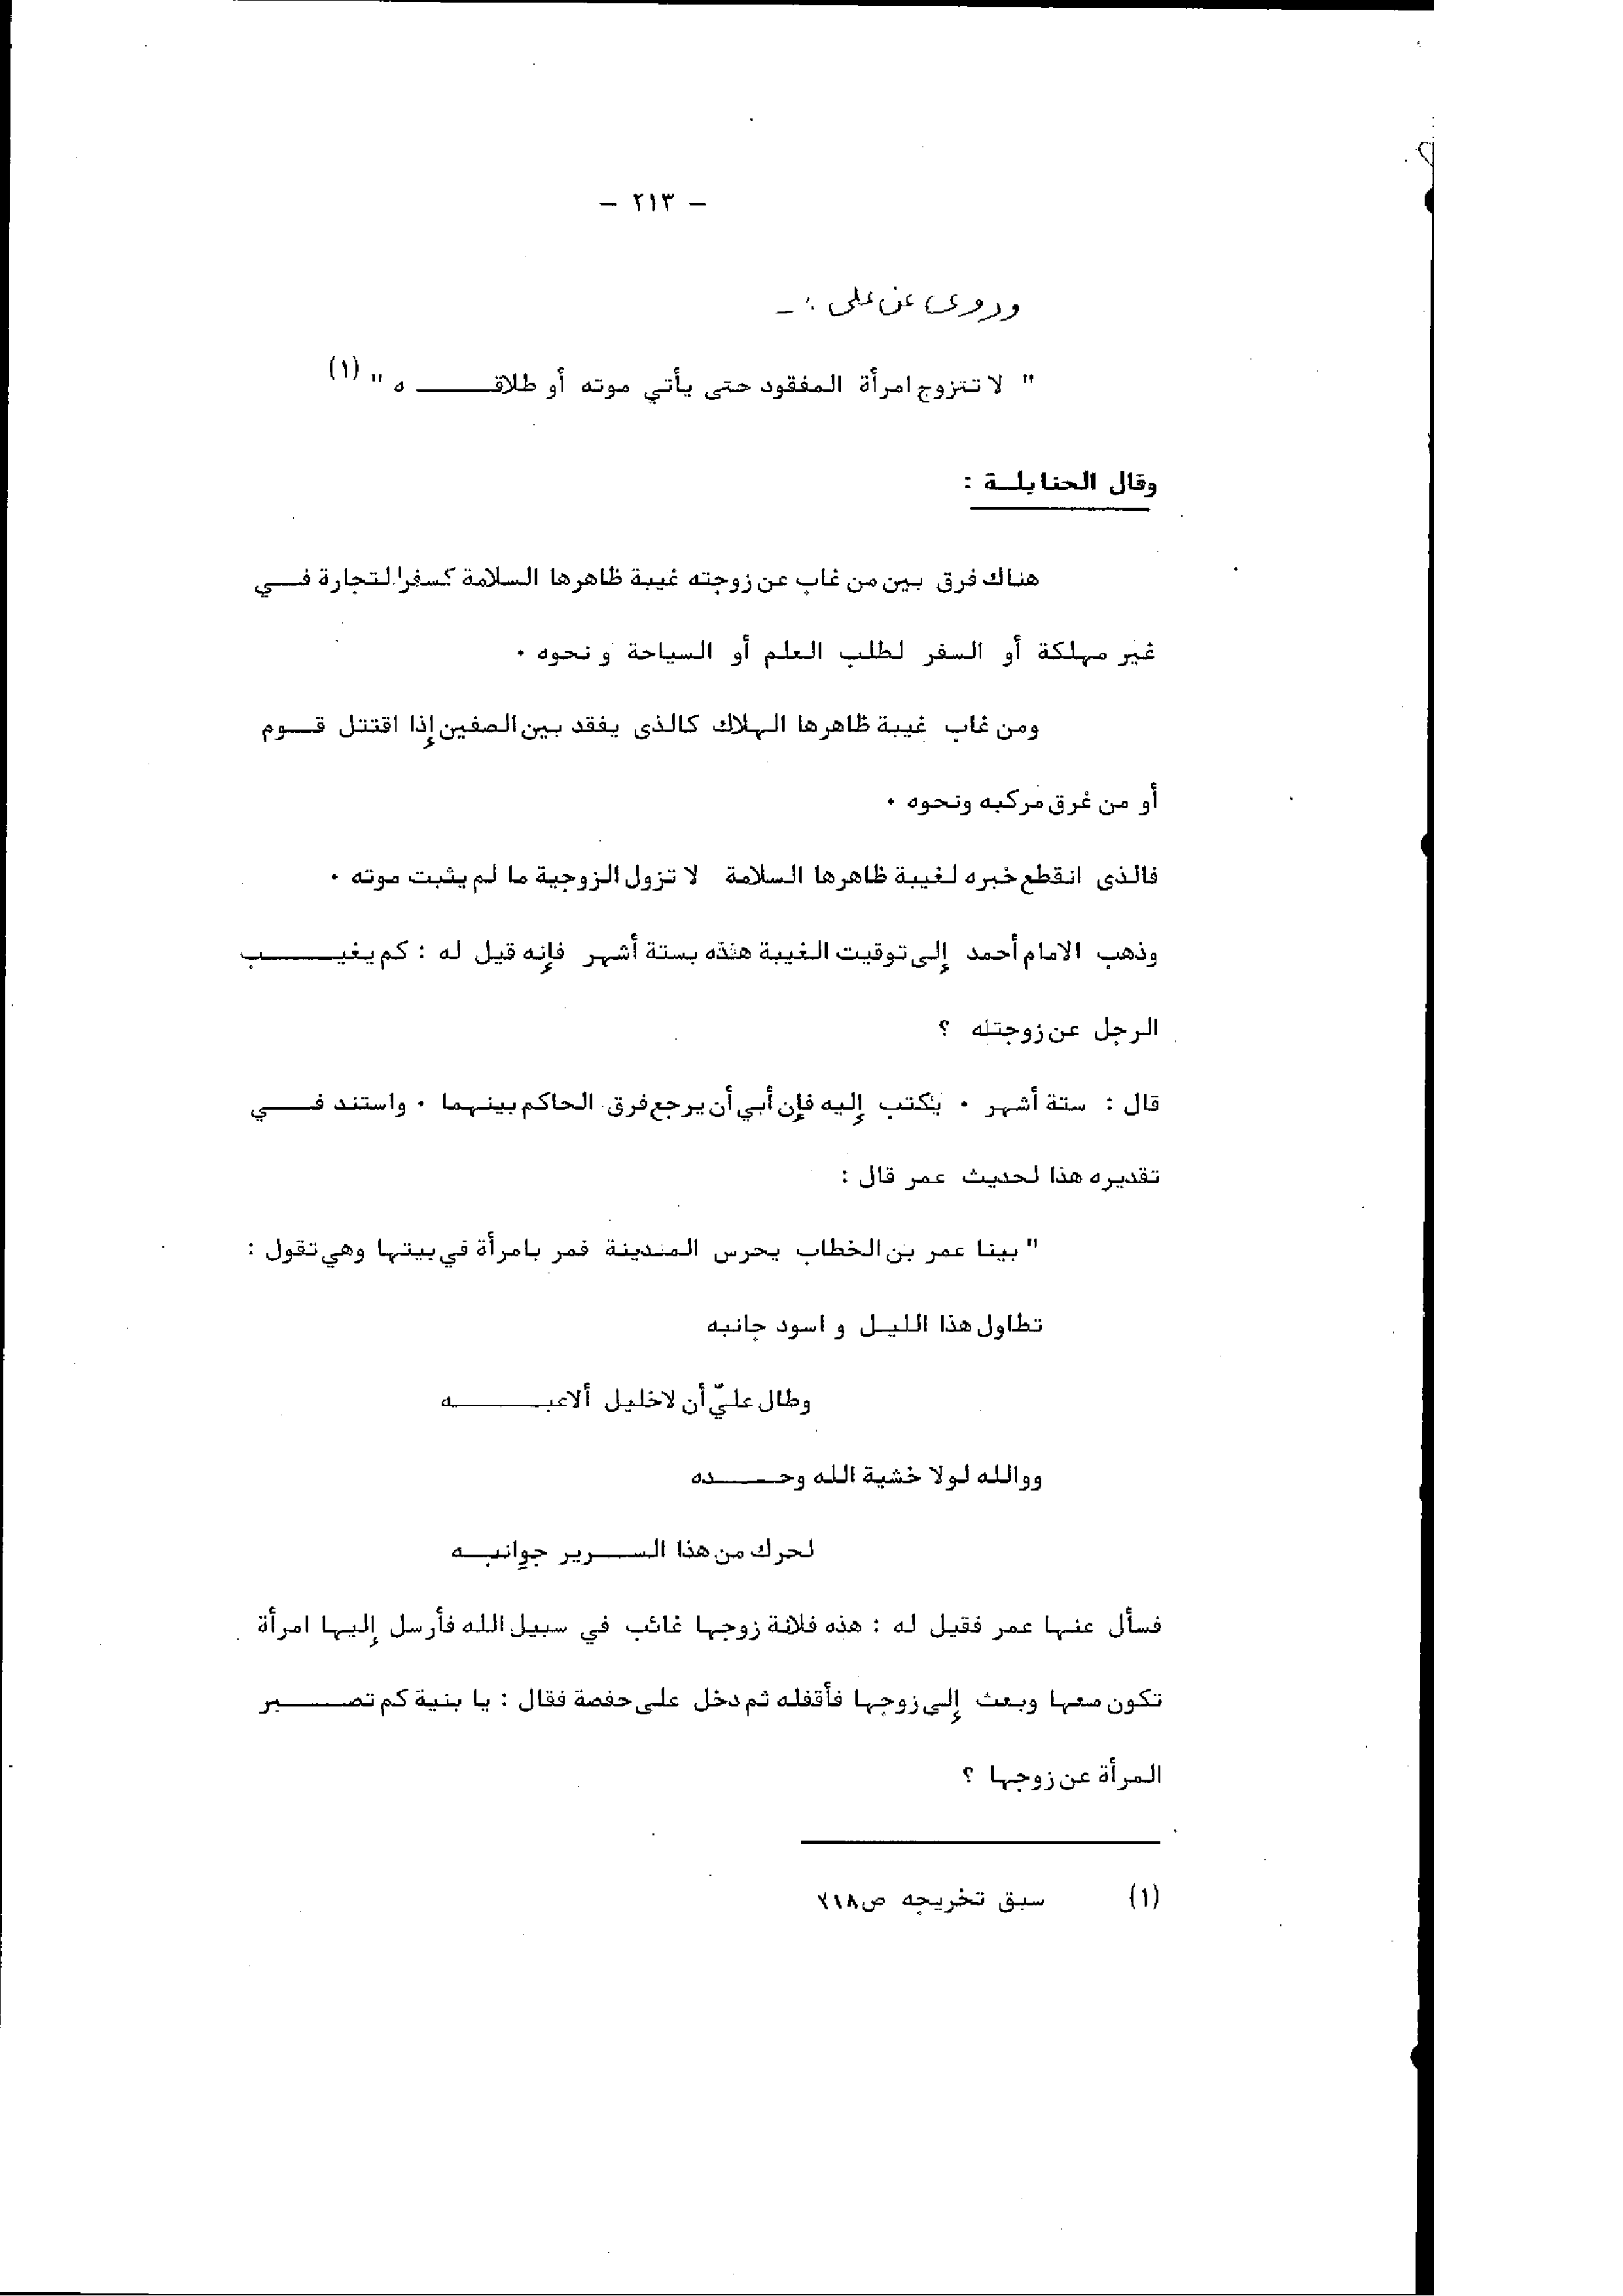 - ٢١٣ -
وروى عن على :-
" لا تتزوج امرأة المفقود حتى يأتي موته أو طلاقـــــه " (١)
وقال الحنابلـة :
هناك فرق بين من غاب عن زوجته غيبة ظاهرها السلامة كسفر التجارة فـــي
غير مهلكة أو السفر لطلب العلم أو السياحة و نحوه ٠
ومن غاب غيبة ظاهرها الهلاك كالذى يفقد بين الصفين إذا اقتتل قـــوم
أو من غرق مركبه ونحوه ٠
فالذى انقطع خبره لغيبة ظاهرها السلامة لا تزول الزوجية ما لم يثبت موته ٠
وذهب الامام أحمد إلى توقيت الغيبة هنذه بستة أشهر فإنه قيل له : كم يغيـــــب
الرجل عن زوجته ؟
قال : ستة أشهر ٠ يكتب إليه فإن أبي أن يرجع فرق الحاكم بينهما ٠ واستند فـــي
تقديره هذا لحديث عمر قال :
" بينا عمر بن الخطاب يحرس المدينة فمر بامرأة في بيتها وهي تقول :
تطاول هذا الليـل و اسود جانبه
وطال عليّ أن لاخليل ألاعبـــــه
ووالله لولا خشية الله وحـــــده
لحرك من هذا الســـرير جوانبـــه
فسأل عنها عمر فقيل له : هذه فلانة زوجها غائب في سبيل الله فأرسل إليها امرأة
تكون معها وبعث إلى زوجها فأقفله ثم دخل على حفصة فقال : يا بنية كم تصـــــبر
المرأة عن زوجها ؟
(١) سبق تخريجه ص